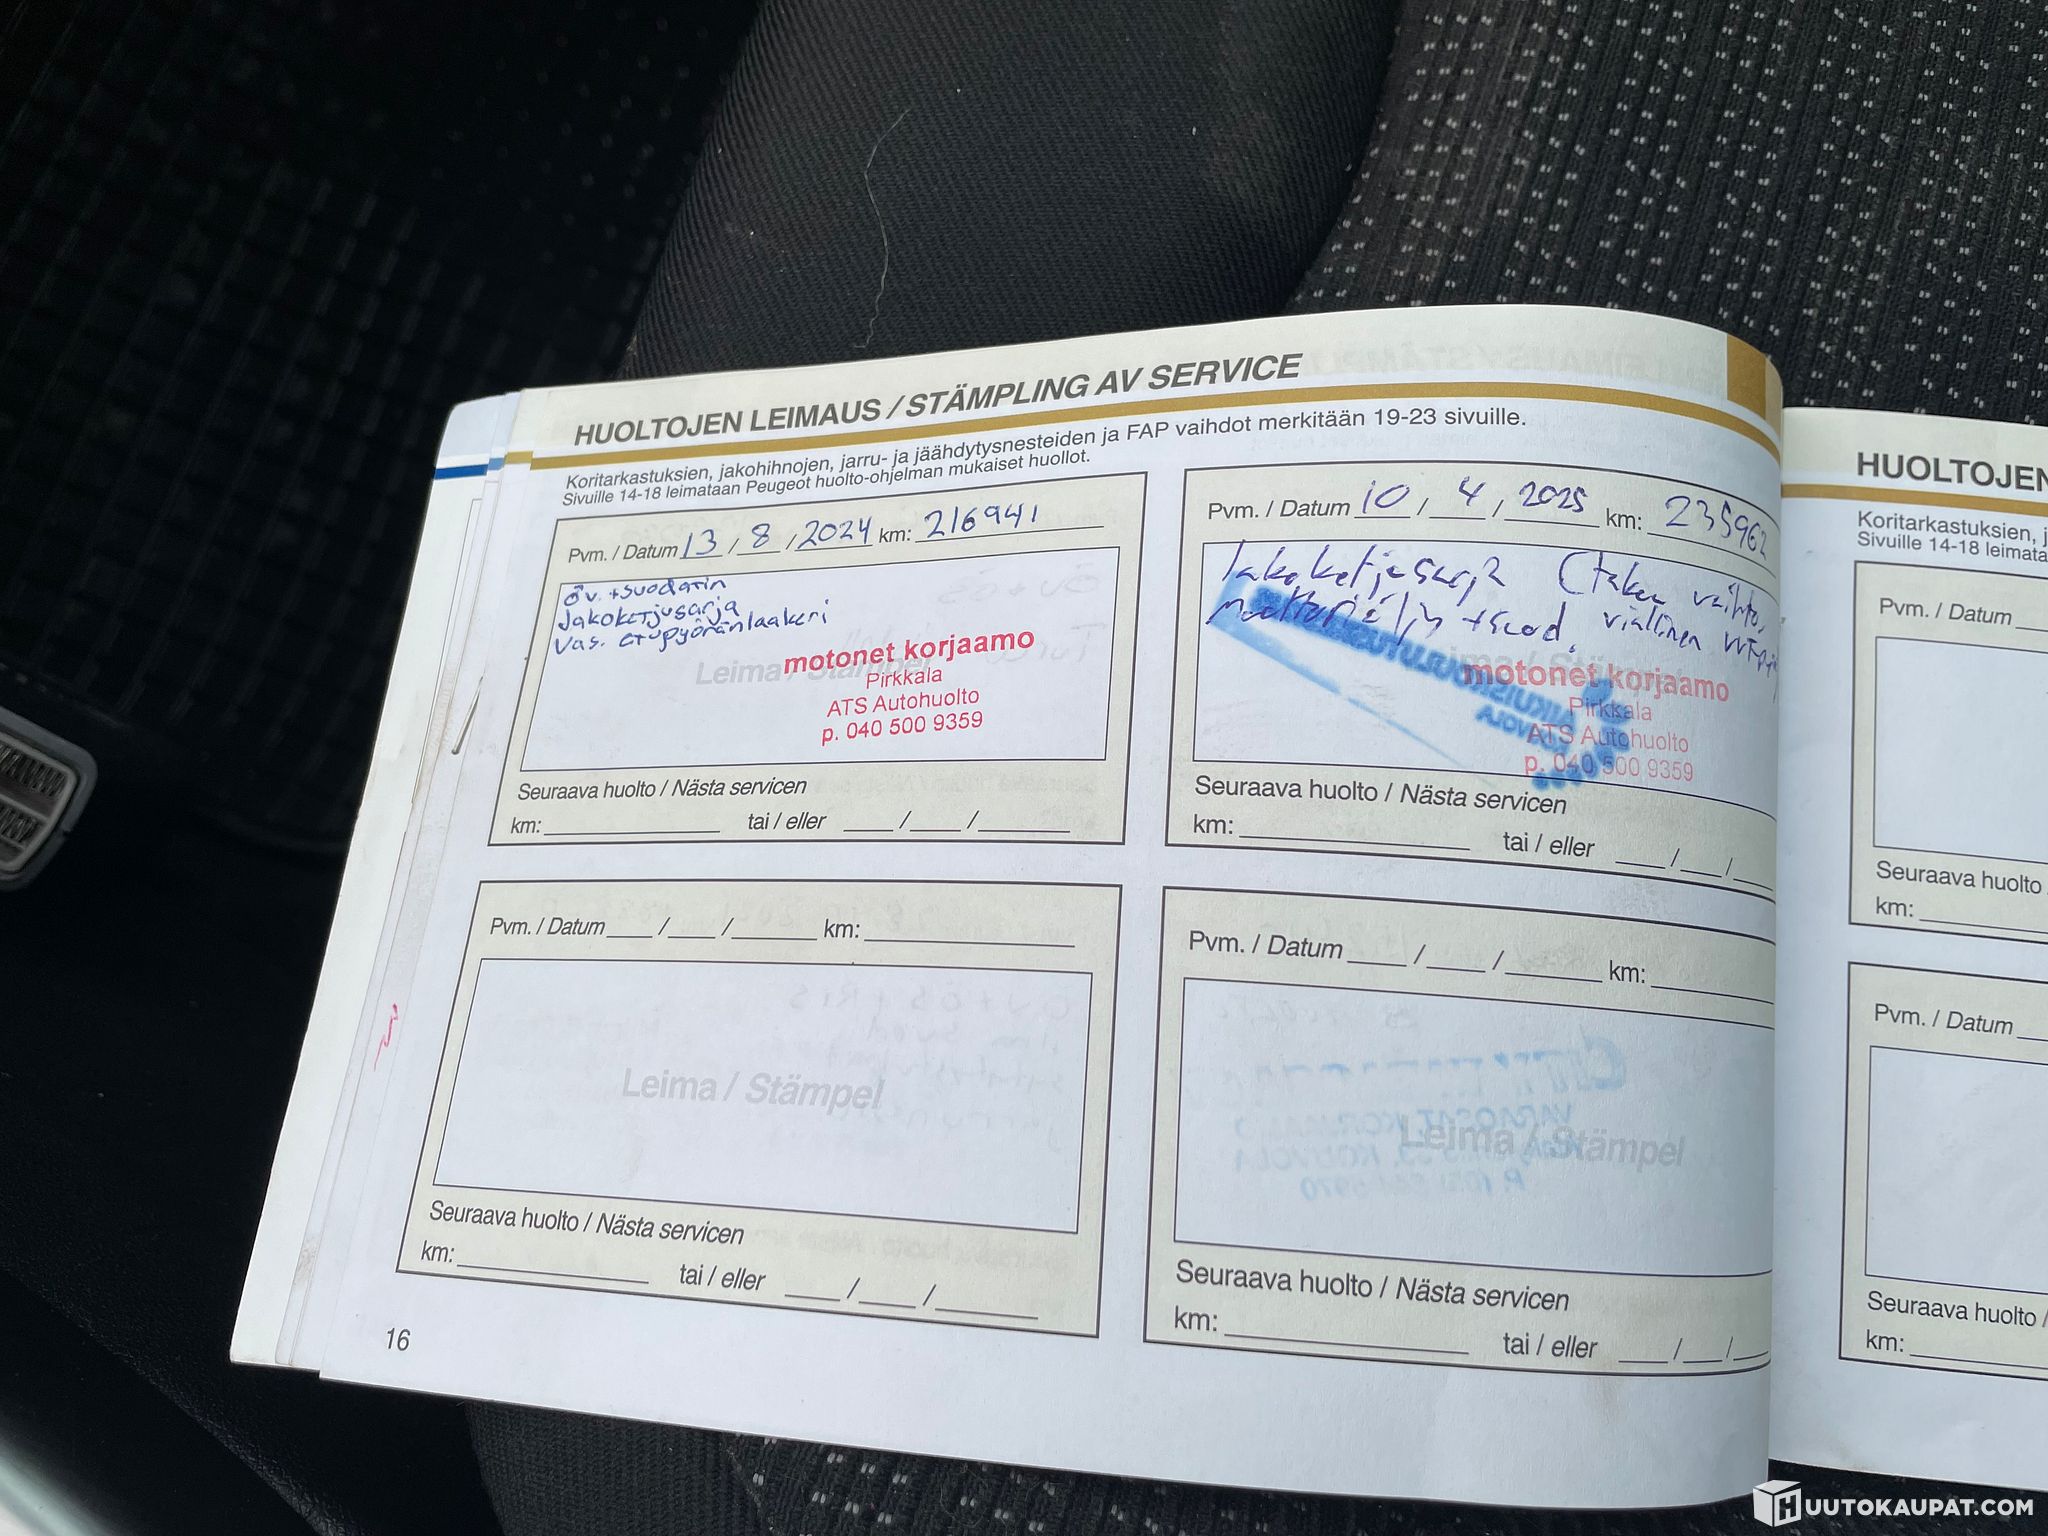 HUOLTOJEN LEIMAUS / STÄMPLING AV SERVICE
Koritarkastuksien, jakohihnojen, jarru- ja jäähdytysnesteiden ja FAP vaihdot merkitään 19-23 sivuille.
Sivuille 14-18 leimataan Peugeot huolto-ohjelman mukaiset huollot.
Pvm. / Datum 13 / 8 / 2024 km: 216941
öv. + suodatin
Jakoketjusarja
Vas. etupyöränlaakeri
Leima / Stämpel
motonet korjaamo
Pirkkala
ATS Autohuolto
p. 040 500 9359
Seuraava huolto / Nästa servicen
km: tai / eller / /
Pvm. / Datum 10 / 4 / 2025 km: 235962
Jakoketjusarja (takuu vaihto,
moottoriöljy + suod. viallinen
motonet korjaamo
Pirkkala
ATS Autohuolto
p. 040 500 9359
Seuraava huolto / Nästa servicen
km: tai / eller / /
Pvm. / Datum / / km:
Leima / Stämpel
Seuraava huolto / Nästa servicen
km: tai / eller / /
Pvm. / Datum / / km:
Leima / Stämpel
Seuraava huolto / Nästa servicen
km: tai / eller / /
16
HUOLTOJEN
Koritarkastuksien,
Sivuille 14-18
Pvm. / Datum
Seuraava huolto
km:
Pvm. / Datum
Seuraava huolto /
km:
HUUTOKAUPAT.COM